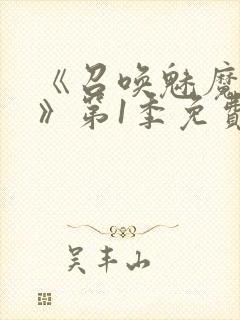 《召唤魅魔
》第1季免費
吴丰山